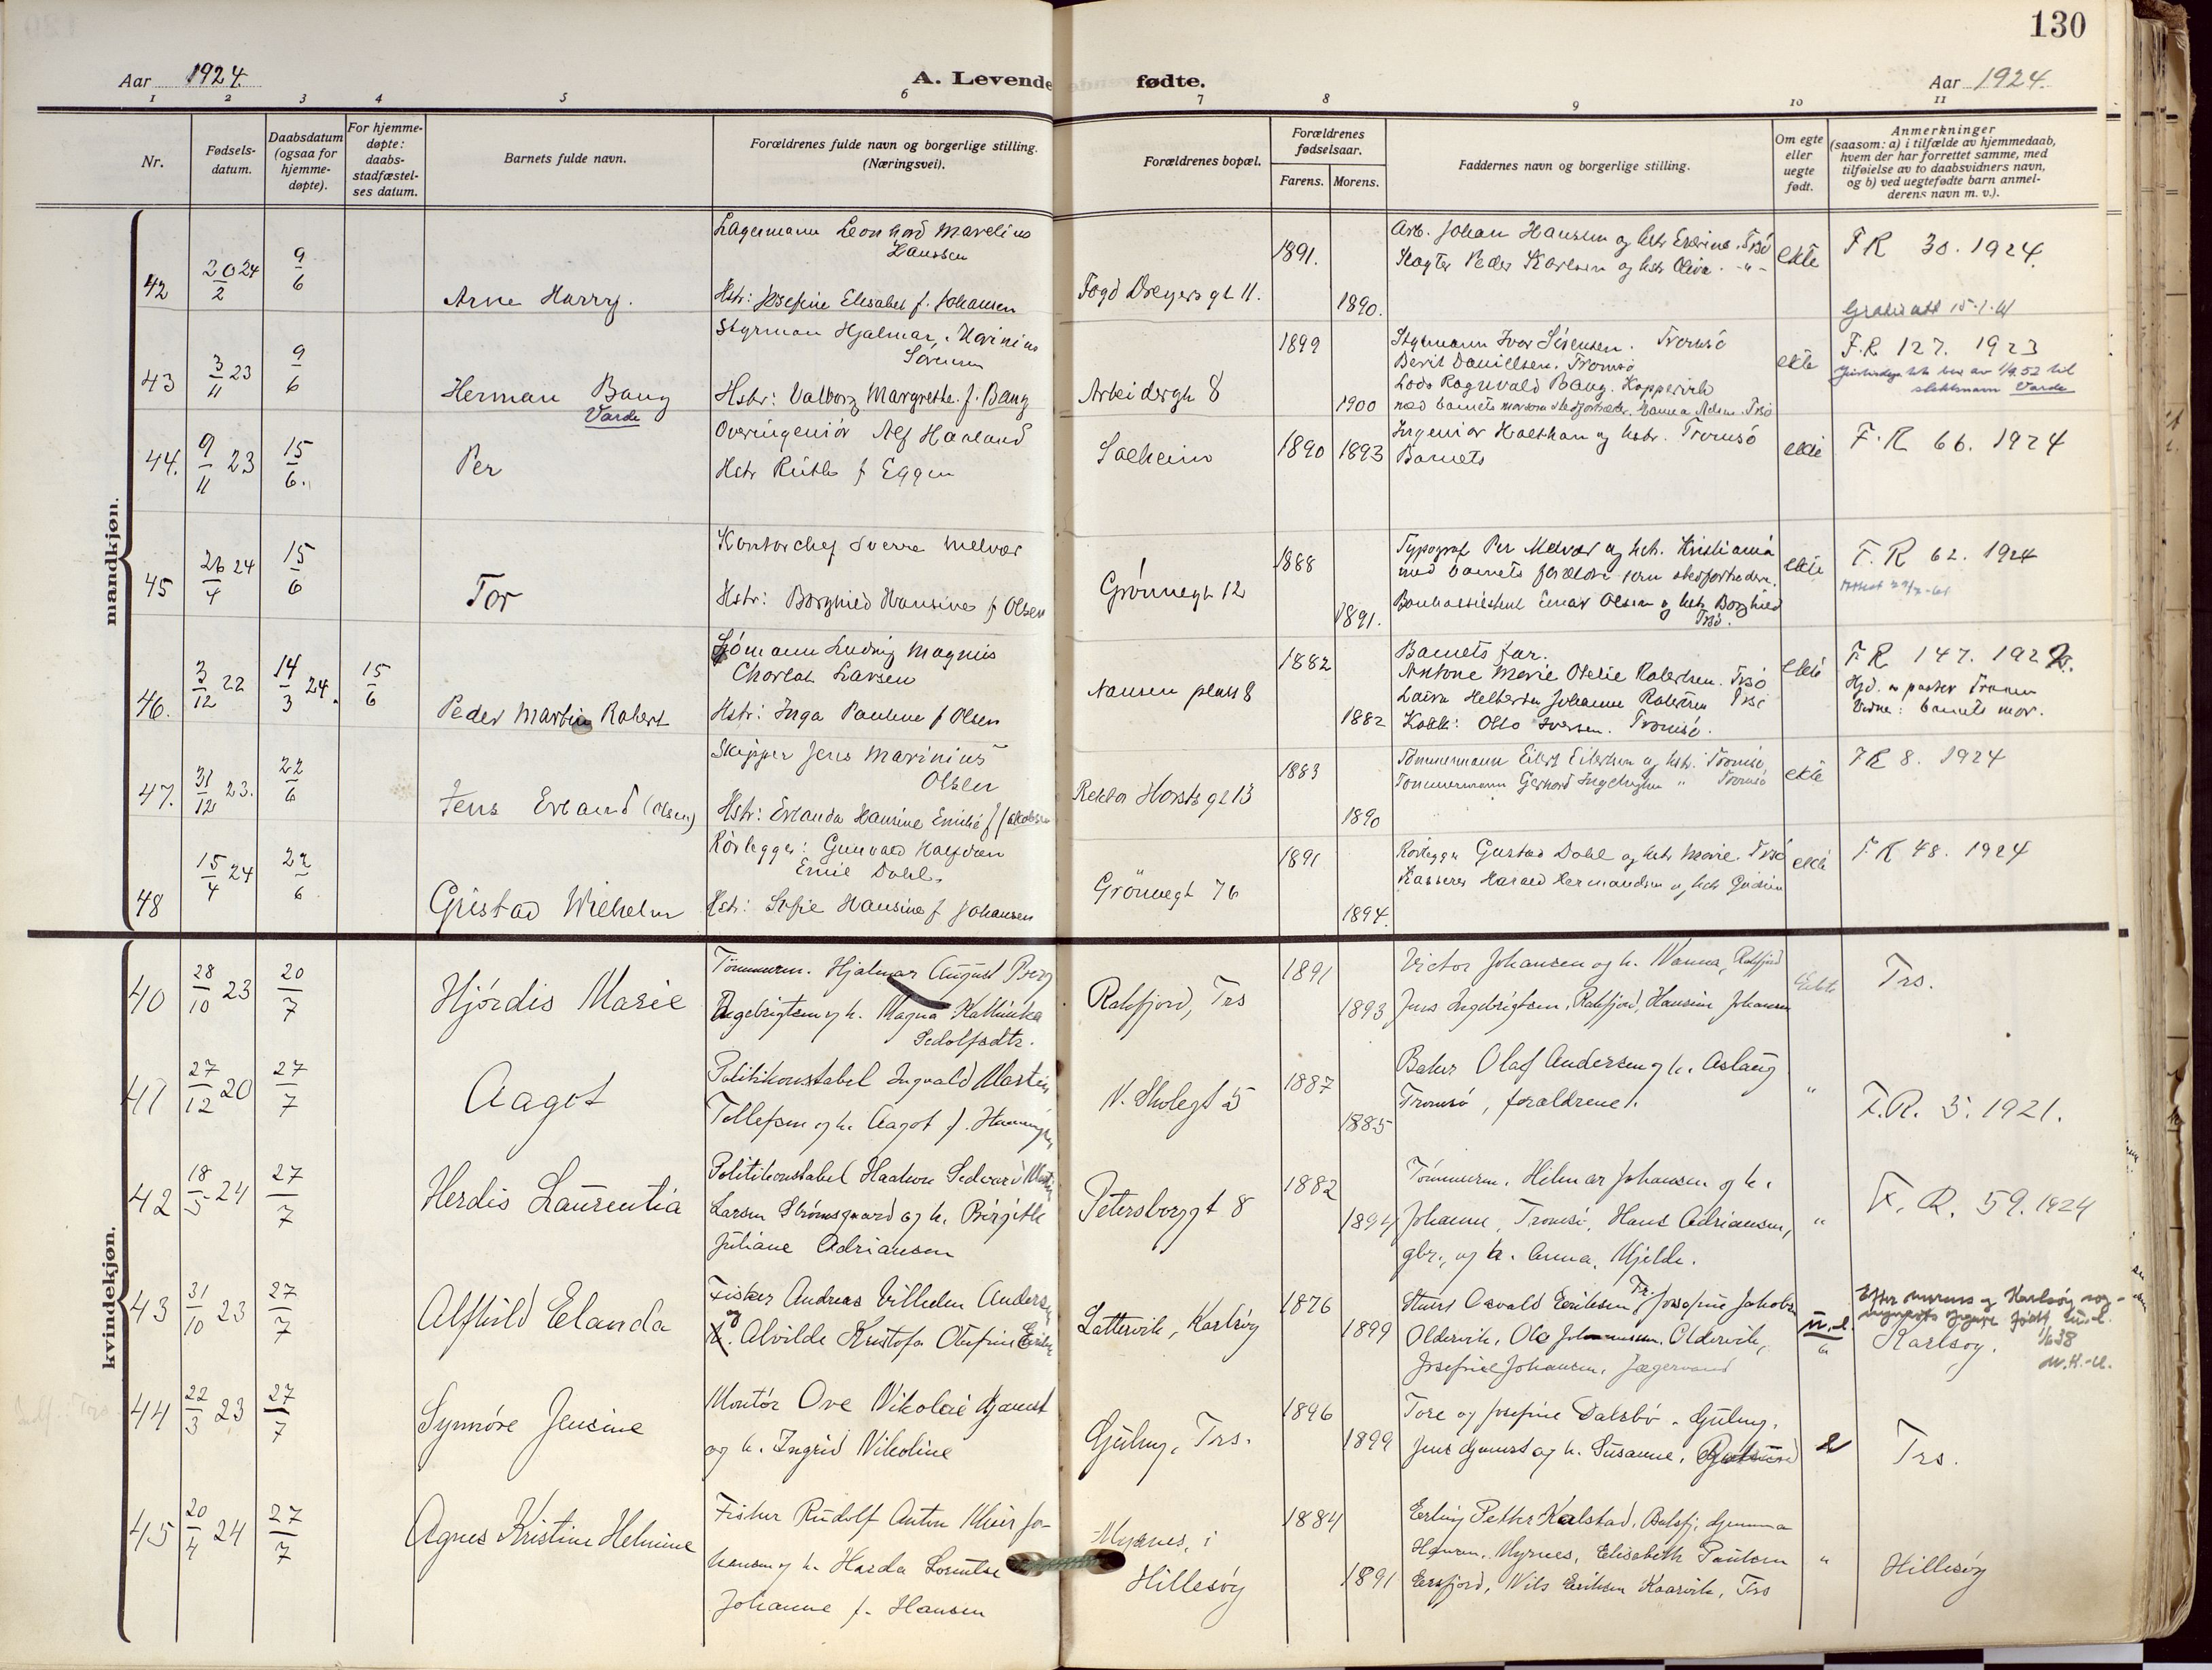 130
Aar 1924.
A. Levende fødte.
Aar 1924.
1 2 3 4 5 6 7 8 9 10 11
Nr.
Fødsels-
datum.
Daabsdatum
(ogsaa for
hjemme-
døpte).
For hjemme-
døpte:
daabs-
stadfæstel-
ses datum.
Barnets fulde navn.
Forældrenes fulde navn og borgerlige stilling.
(Næringsvei).
Forældrenes bopæl.
Forældrenes
fødselsaar.
Farens. Morens.
Faddernes navn og borgerlige stilling.
Om egte
eller
uegte
født.
Anmerkninger
(saasom: a) i tilfælde av hjemmedaab,
hvem der har forrettet samme, med
tilføielse av to daabsvidners navn,
og b) ved uegtefødte barn anmel-
derens navn m. v.).
mandkjøn.
42
20/2 24
9/6
Arne Harry.
Lagermann Leonhard Marelius
Hanssen
Hstr: Josefine Elisabet f. Johansen
Fogd Dreyersgt 11.
1891.
1890.
Arb. Johan Hansen og hstr
Peder Karlsen og hstr Oliva. -"-
ekte
F R 30. 1924.
43
3/11 23
9/6
Herman Bang
Varde
Styrman Hjalmar
Sørensen
Hstr: Valborg Margrethe f. Bang
Arbeidergt 8
1899
1900
Styrmann Ivar Sørensen. Tromsø
Berit Daniellsen, Tromsø
Lods Ragnvald Bang. Koppervik
ekte
F.R 127. 1923
slektsnavn Varde
44.
9/11 23
15/6.
Per
Overingeniør Alf Haaland
Hstr Ruth f Eggen
Solheim
1890 1893
Ingeniør og hstr. Tromsø
Barnets
ekte
F.R 66. 1924
45
26/4 24
15/6
Tor
Kontorchef Sverre Melvær
Hstr: Borghild Hansine f Olsen
Grønnegt 12
1888
1891.
Typograf Per Melvær og hstr. Kristiania
med barnets forældre som stedfortredere.
Einar Olsen og hstr Borghild
Trsø.
ekte
F.R 62. 1924
46.
3/12 22
14/3 24.
15/6
Peder Martin Robert
Sjømann Ludvig Magnus
Charlot Larsen
Hstr: Inga Pauline f Olsen
Nansen plass 8
1882
1882
Barnets far.
Antone Marie Otelie Robertsen. Trsø
Laura Johanne Robertsen Trsø
Kokk: Otto Iversen. Tromsø.
ekte
F R 147. 1922.
Hjd. av pastor
Vidne: barnets mor.
47.
31/12 23.
22/6
Jens Erland (Olsen)
Skipper Jens Marinius
Olsen
Hstr: Erlanda Hansine Emilie f Jakobsen
Rektor Horsts gt 13
1883
1890
Tømmermann Eilert Eilertsen og hstr. Tromsø
Tømmermann Gerhard " Tromsø
ekte
F R 8. 1924
48
15/4 24
22/6
Gustav Wilhelm
Rørlegger: Gunvald Halfdan
Emil Dahl.
Hstr: Sofie Hansine f Johansen
Grønnegt 76
1891
1894.
Rørlegger Gustav Dahl og hstr Marie. Trsø
Kasserer Harald Hermandsen og hstr
ekte
F.R 48. 1924
kvindekjøn.
40
28/10 23
20/7
Hjørdis Marie
Tømmerm. Hjalmar August Berg
Ingebrigtsen og h. Magna Kathinka
Sedolfsdtr.
Rakfjord, Trs
1891
1893
Victor Johansen og h. Nanna, Rakfjord
Jens Ingebrigtsen, Rakfjord, Hansine Johansen
Ekte
Trs.
41
27/12 20
27/7
Aagot
Politikonstabel Ingvald Martin
Tollefsen og h. Aagot f. Henningsen
N. Skolegt 5
1887
1885
Baker Olaf Andersen og h. Aslaug
Tromsø, forældrene.
"
F.R. 5. 1921.
42
18/5 24
27/7
Herdis Laurentia
Politikonstabel Haakon Sedvard Martin
Larsen Strømsgaard og h. Birgithe
Juliane Adriansen
Petersborggt 8
1882
1894
Tømmerm. Hilmar Johansen og h.
Johanne, Tromsø, Hans Adriansen,
gbr., og h. Anna, Mjelde.
"
F. R. 59. 1924
43
31/10 23
27/7
Alfhild Elanda
Fisker Andreas Vilhelm Andersen
og
h. Alvilde Kristofa Olufine
Lattervik, Karlsøy
1876
1899
Osvald Eriksen Fr. Josefine Jakobsen
Oldervik, Ole Johannesen, Oldervik,
Josefine Johansen, Jægervand
u.e.
Karlsøy.
44
22/3 23
27/7
Synnøre Jensine
Montør Ove Nikolai Gjæmst
og h. Ingrid Nikoline
Guleng, Trs.
1896
1899
Tore og Josefine Dalsbø, Guleng,
Jens Gjæmst og h. Susanne,
e
Trs.
45
20/4 24
27/7
Agnes Kristine Helmine
Fisker Rudolf Anton Meier Jo-
hansen og h. Harda Lorentse
Johanne f. Hansen
Myrnes, i
Hillesøy
1884
1891
Erling Petter Kalstad, Balsfj,
Hansen, Myrnes, Elisabeth Paulsen
Ersfjord, Nils Eriksen Kaarvik, Trs
"
Hillesøy